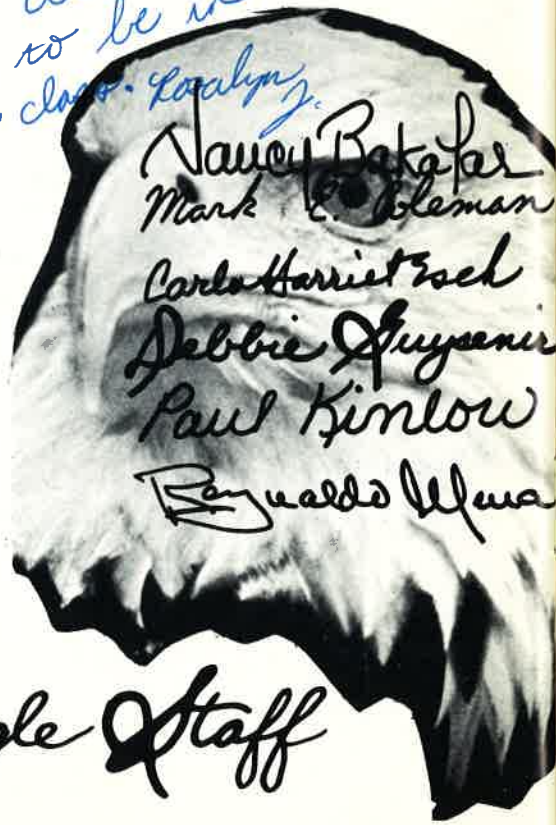 to be in
class. Rosalyn J.
Nancy Bakalar
Mark E. Coleman
Carla Harriet Esch
Debbie Guysenir
Paul Kinlow
Reynaldo Mena
gle Staff